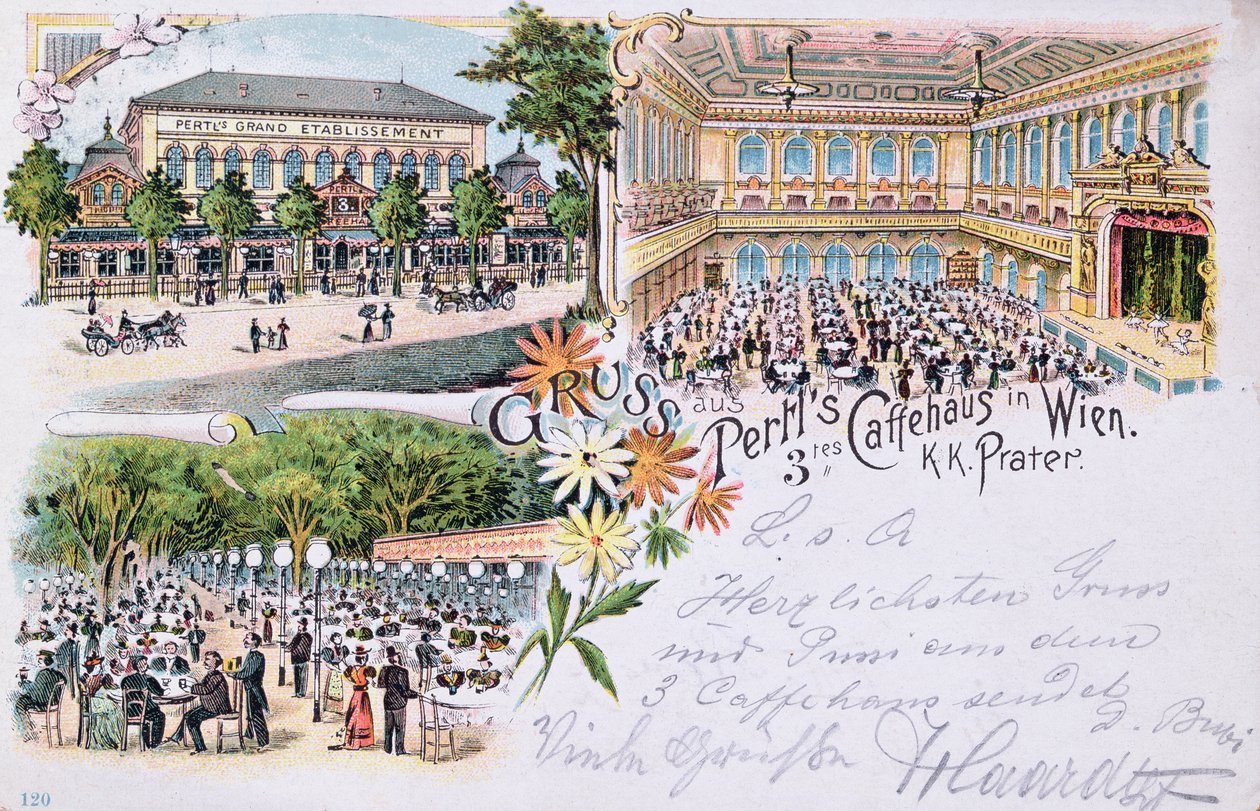 PERTL'S GRAND ETABLISSEMENT
PERTL
3.
GRUSS aus Pertl's Caffehaus in Wien.
3tes K.K. Prater.
L. s. A
Herzlichsten Gruss
und Pussi aus dem
3 Caffehaus sendet
D. Bubi
Viele Grüße
120